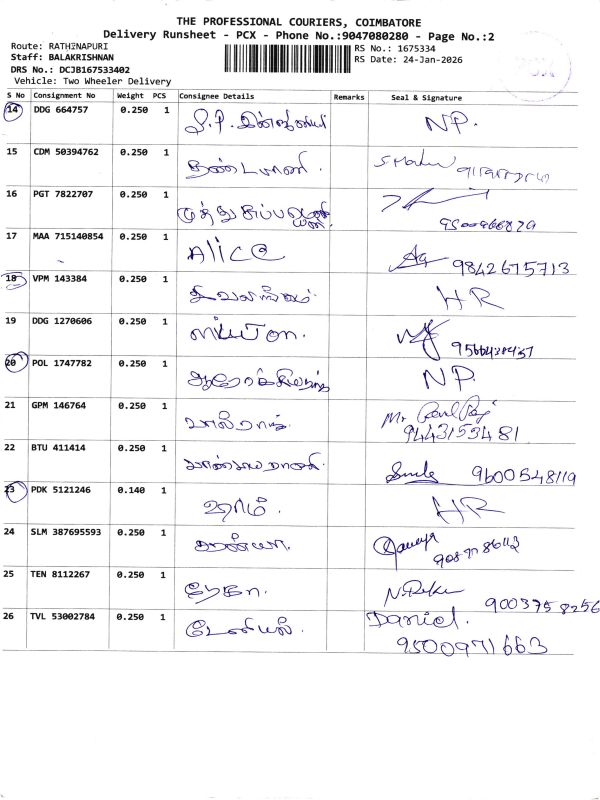 THE PROFESSIONAL COURIERS, COIMBATORE
Delivery Runsheet - PCX - Phone No.:9047080280 - Page No.:2
Route: RATHINAPURI
Staff: BALAKRISHNAN
DRS No.: DCJB167533402
Vehicle: Two Wheeler Delivery
RS No.: 1675334
RS Date: 24-Jan-2026
PCX
S No Consignment No Weight PCS Consignee Details Remarks Seal & Signature
14 DDG 664757 0.250 1 NP.
15 CDM 50394762 0.250 1 தண்டபாணி.
16 PGT 7822707 0.250 1
17 MAA 715140854 0.250 1 Alice 9842675713
18 VPM 143384 0.250 1 சிவலிங்கம். HR
19 DDG 1270606 0.250 1 மில்டன்.
20 POL 1747782 0.250 1 NP.
21 GPM 146764 0.250 1 பால்ராஜ். Mr Paul Raj
9443153481
22 BTU 411414 0.250 1 9600548119
23 PDK 5121246 0.140 1 ஹரிம். HR
24 SLM 387695593 0.250 1
25 TEN 8112267 0.250 1 ரேகா. N. Reka 9003758256
26 TVL 53002784 0.250 1 டேனியல். Daniel.
9500971663